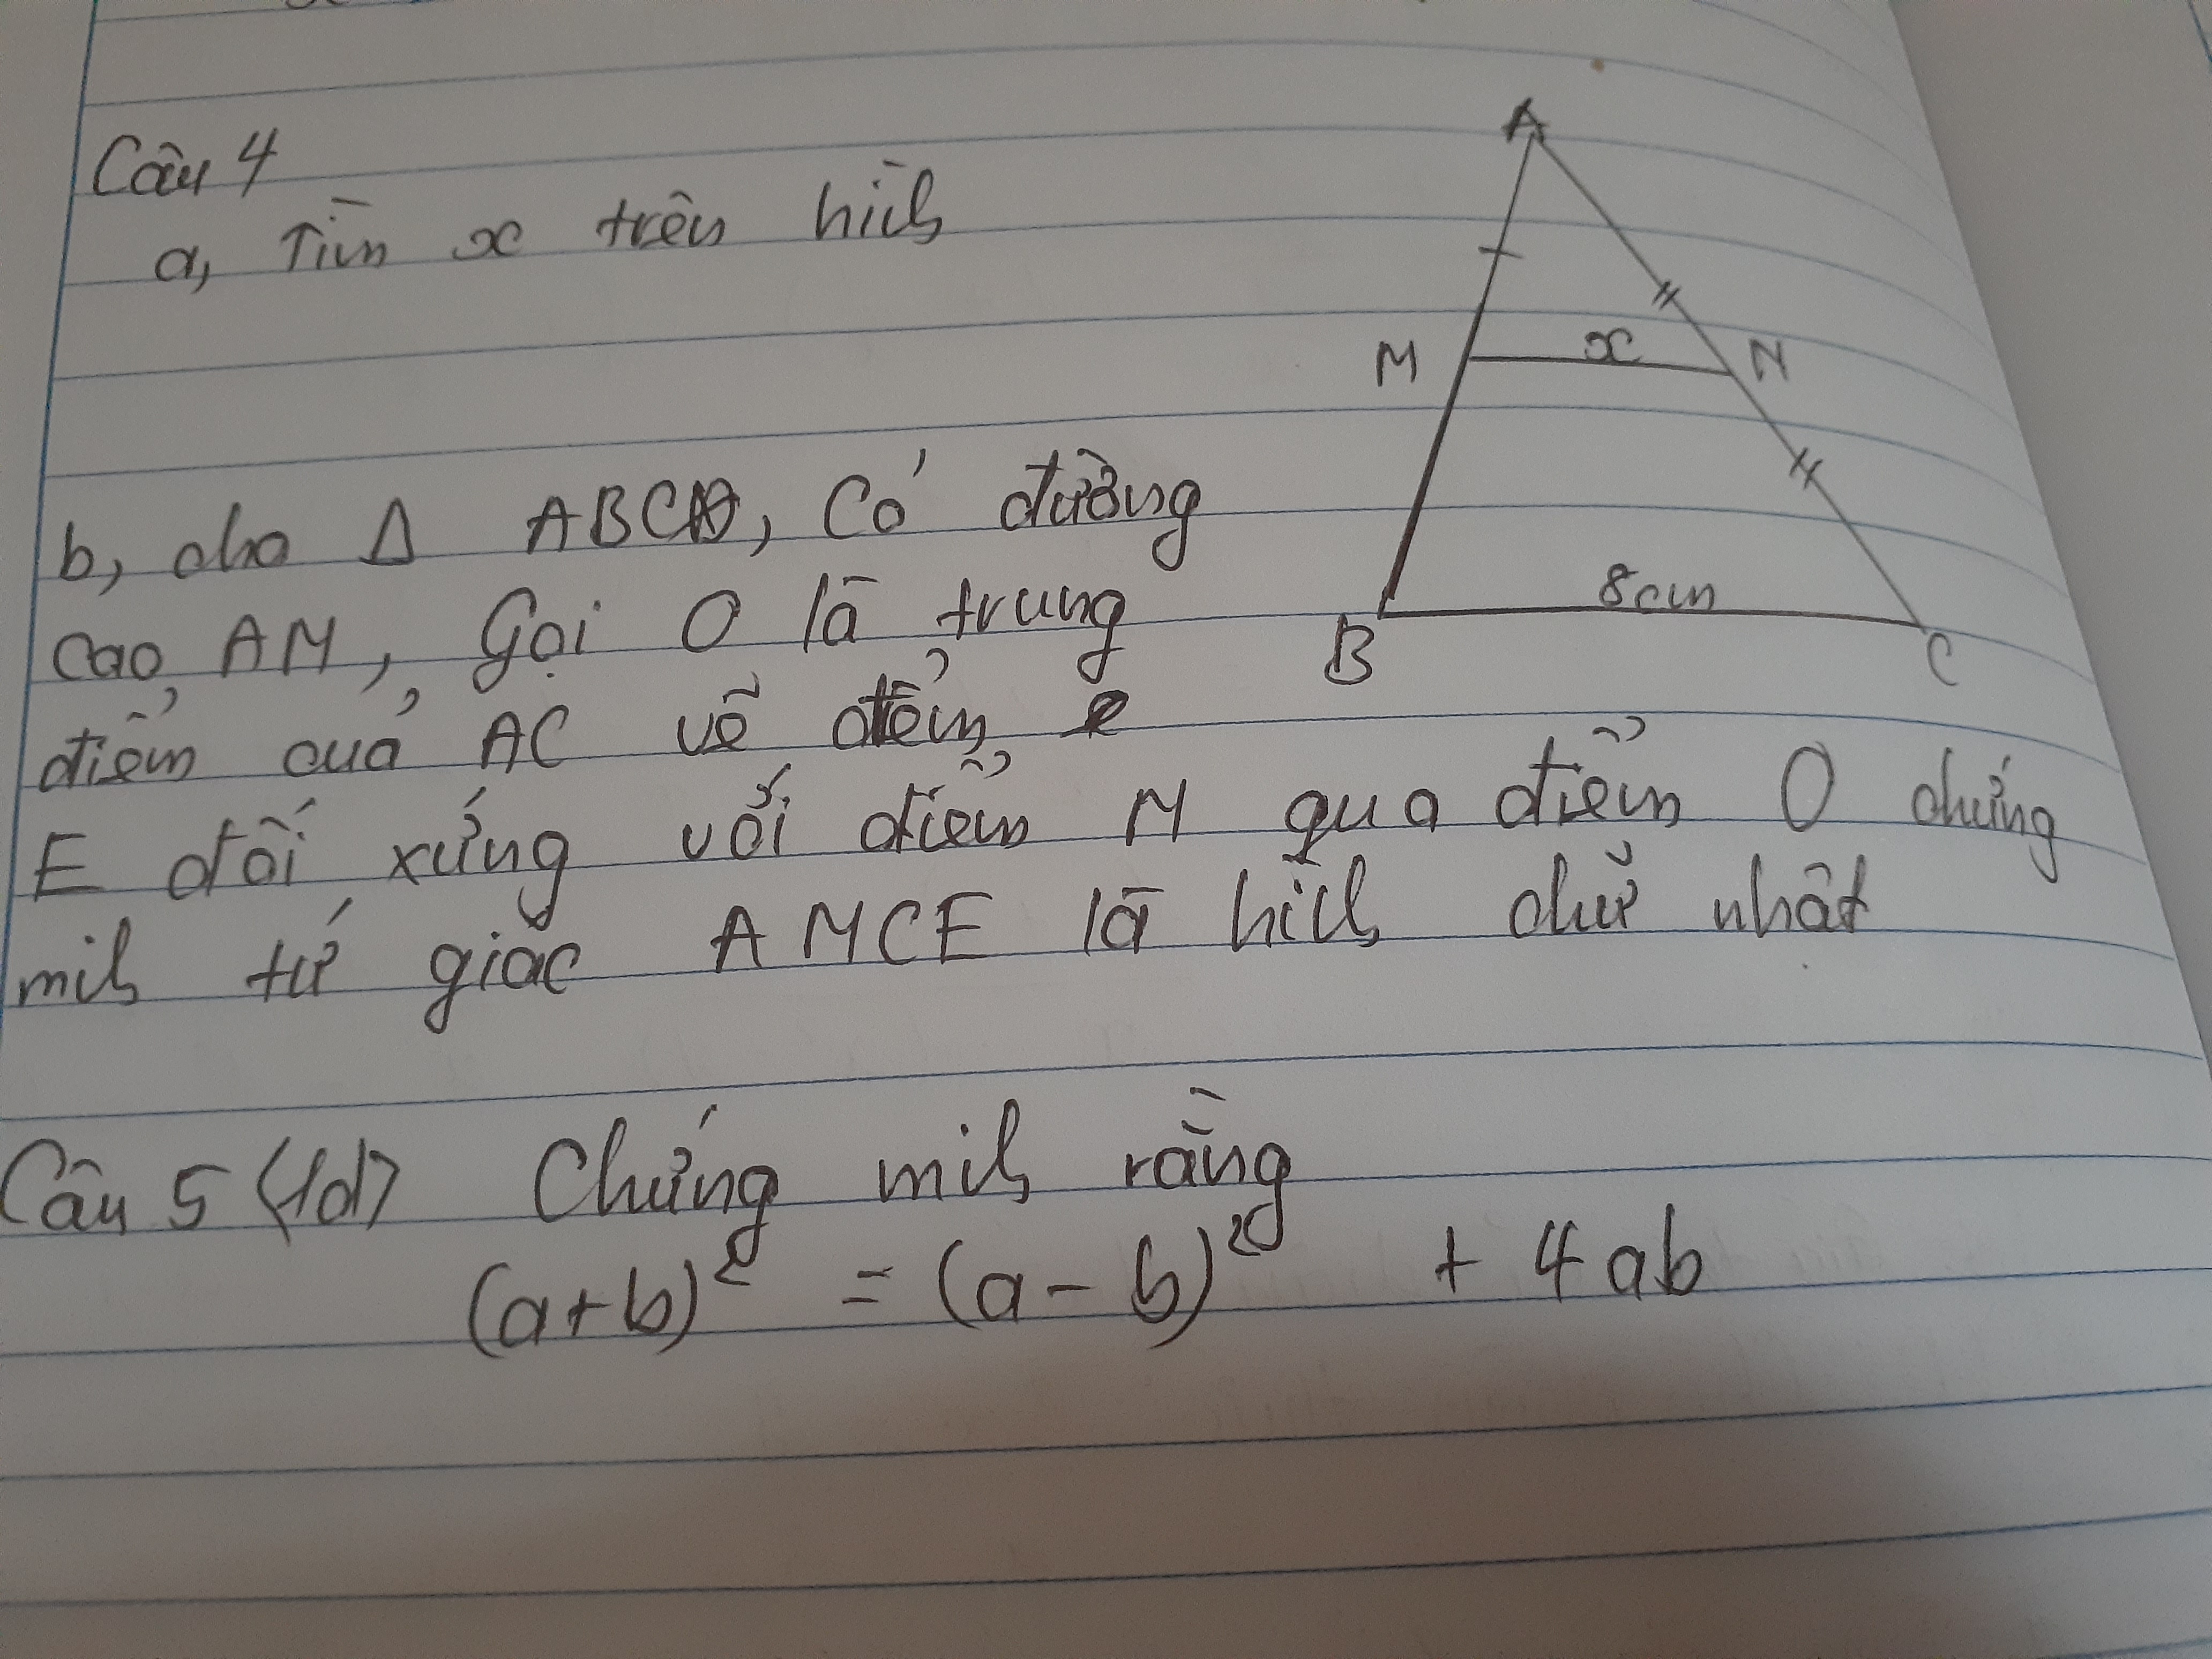 Câu 4
a, Tìm x trên hình
A
M
x
N
8cm
B
C
b, cho Δ ABC, Có đường
cao, AM, Gọi O là trung
điểm của AC vẽ điểm
E đối xứng với điểm M qua điểm O chứng
minh tứ giác AMCE là hình chữ nhât
Câu 5 (1đ) Chứng minh rằng
(a+b)² = (a-b)² + 4ab